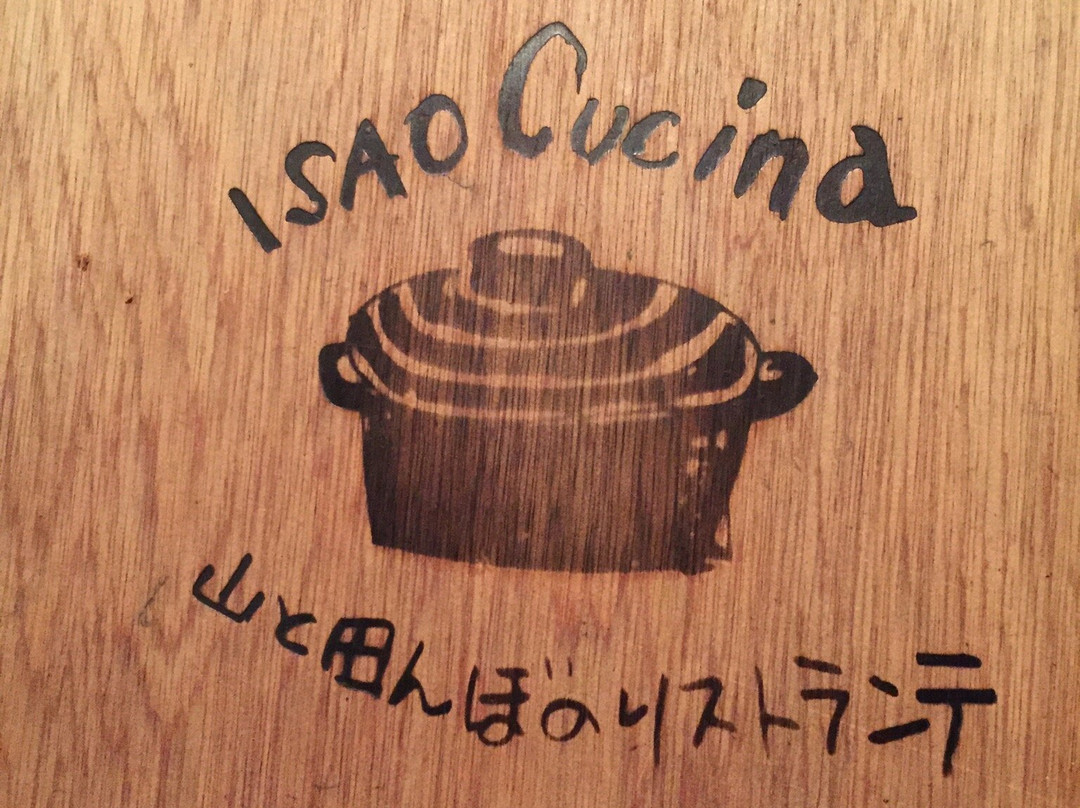 ISAO Cucina
山と田んぼのリストランテ